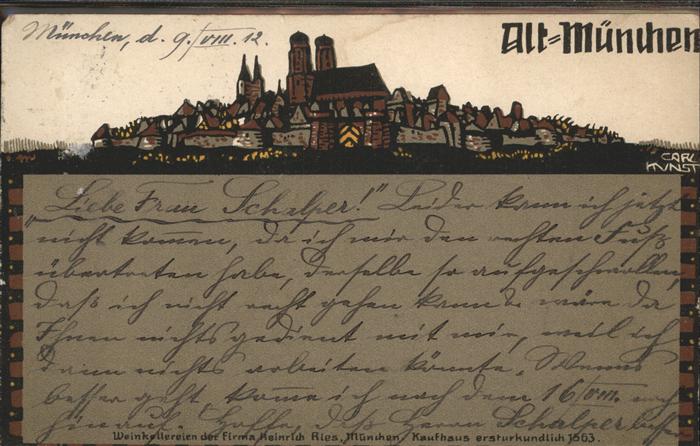 München, d. 9./VIII. 12.
Alt=München
CARL KUNST
„Liebe Frau Schalper!" Leider kann ich jetzt
nicht kom̅en, da ich mir den rechten Fuß
übertreten habe, derselbe so aufgeschwollen,
daß ich nicht recht gehen kann & wäre da
Ihnen nichts gedient mit mir, weil ich
dann nichts arbeiten könnte. Wenns
besser geht kom̅e ich nach dem 16/VIII. noch
hinaus. Hoffe, daß Herrn Schalper
Weinkellereien der Firma Heinrich Ries, München, Kaufhaus ersturkundlich 1563.